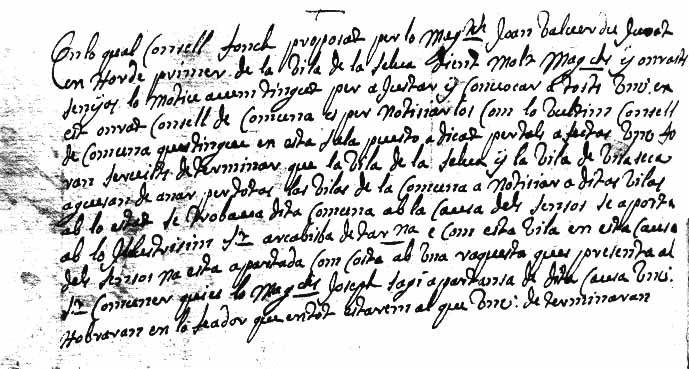 En lo qual Consell fonch proposat per lo Magch Joan Valverdu Jurat
en Horde primer de la Vila de la Selva dient molt Magchs y onrats
senyos lo motiu avem tingut per a Justar y Convocar a tots Vms. en
est onrat Consell de Comuna es per notisiarlos Com lo ultim Consell
de Comuna que tingue en esta sala puesto adicat per tals afectes Vms fo
ran serveits determinar que la Vila de la Selva y la Vila de Vilaseca
aguesan de anar per totas las Vilas de la Comuna a notisiar a ditas Vilas
ab lo estat se trobava dita Comuna ab la Causa dels sensos se aporta
ab lo Illustrisim Sr arcabisbe de Tarna e Com esta Vila en esta Causa
dels sensos na esta apartada Com Costa ab una raquesta ques presenta al
Sr Comuner quies lo Magchs Joseph sagi apartansa de dita Causa Vms.
Hobraran en lo seador que en tot estarem al que Vms. determinaran